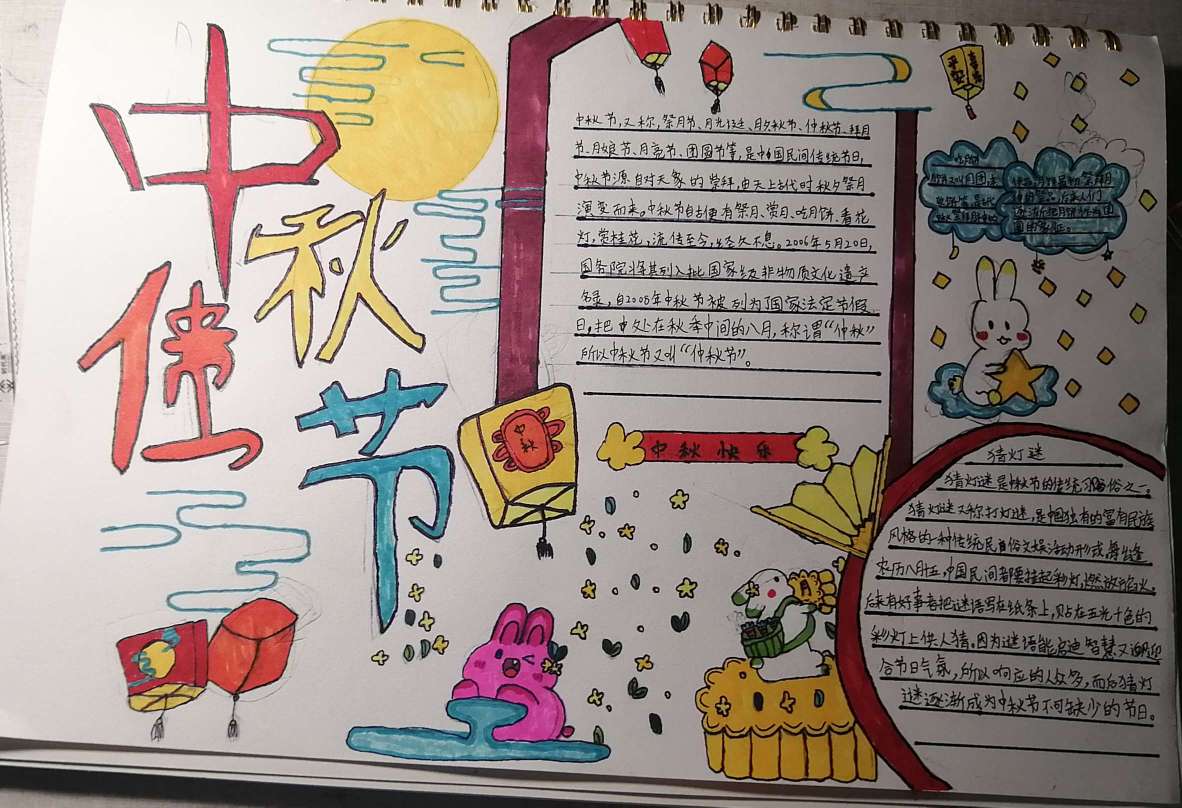 中秋佳节
中秋节,又称,祭月节、月光诞、月夕秋节、仲秋节、拜月
节、月娘节、月亮节、团圆节等,是中国民间传统节日,
中秋节源自对天象的崇拜,由天上古代时秋夕祭月
演变而来。中秋节自古便有祭月、赏月、吃月饼、看花
灯,赏桂花,流传至今,经久不息。2006年5月20日,
国务院将其列入批国家级非物质文化遗产
名录,自2008年中秋节被列为国家法定节假
日,把中处在秋季中间的八月,称谓“仲秋”
所以中秋节又叫“仲秋节”。
中秋
中秋快乐
猜灯谜
猜灯谜是中秋节的传统习俗之一。
猜灯谜又称打灯谜,是中国独有的富有民族
风格的一种传统民俗文娱活动形式,每逢
农历八月十五,中国民间都要挂起彩灯,燃放焰火。
后来有好事者把谜语写在纸条上,贴在五光十色的
彩灯上供人猜。因为谜语能启迪智慧又迎
合节日气氛,所以响应的人众多,而后猜灯
谜逐渐成为中秋节不可缺少的节日。